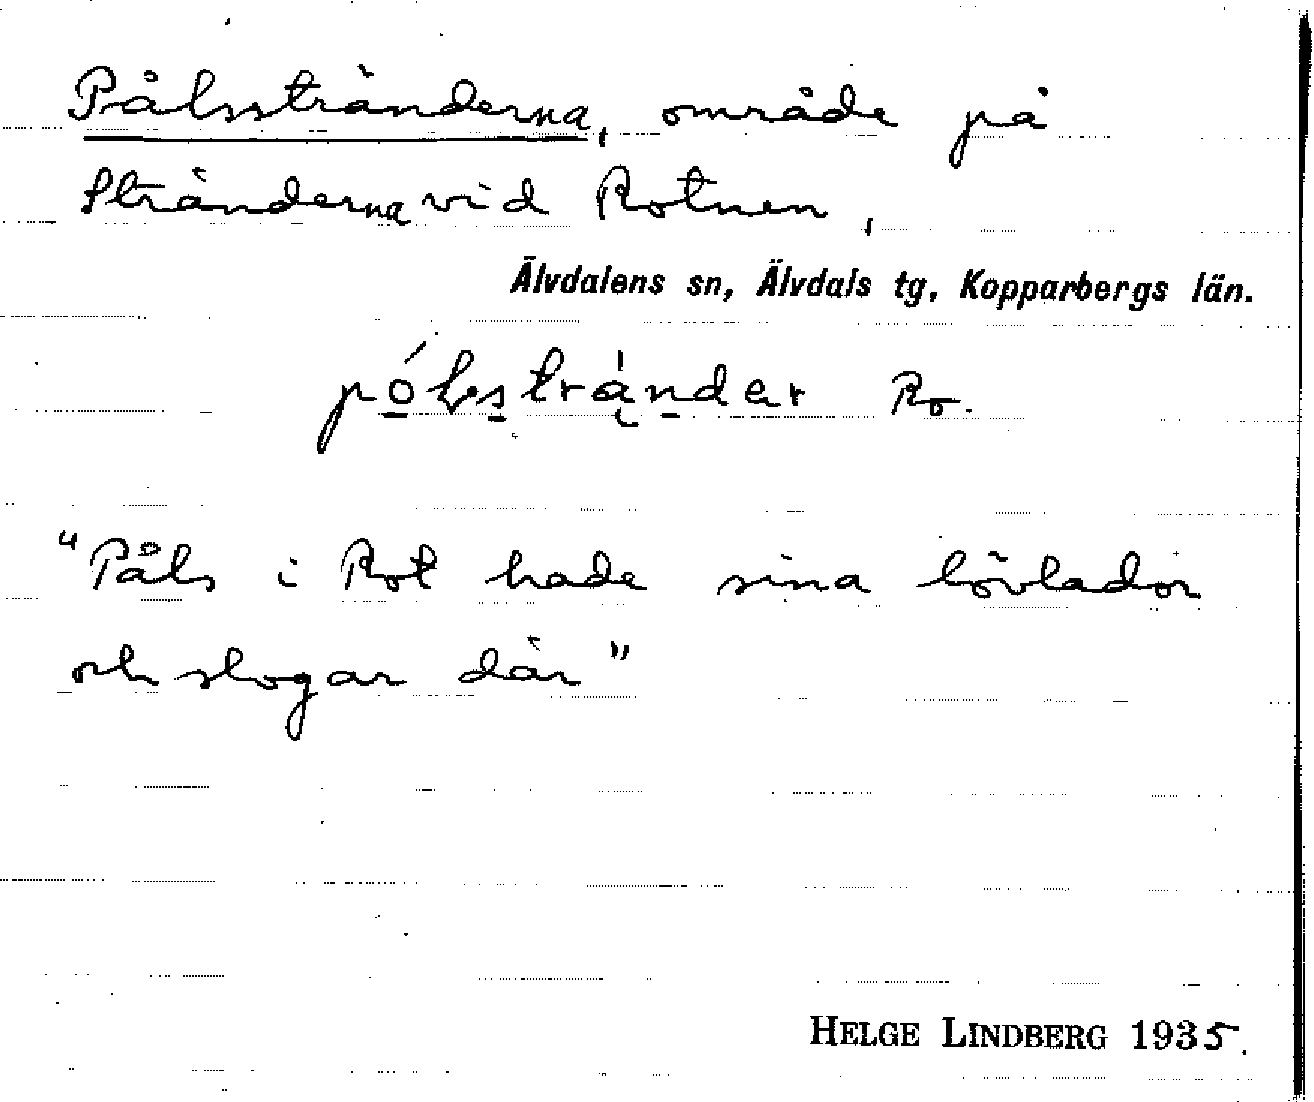 Pålsstränderna, område på
Stränderna vid Rotnen,
Älvdalens sn, Älvdals tg, Kopparbergs län.
Ro.
"Påls i Rot hade sina lövlador
och slogar där"
HELGE LINDBERG 1935.